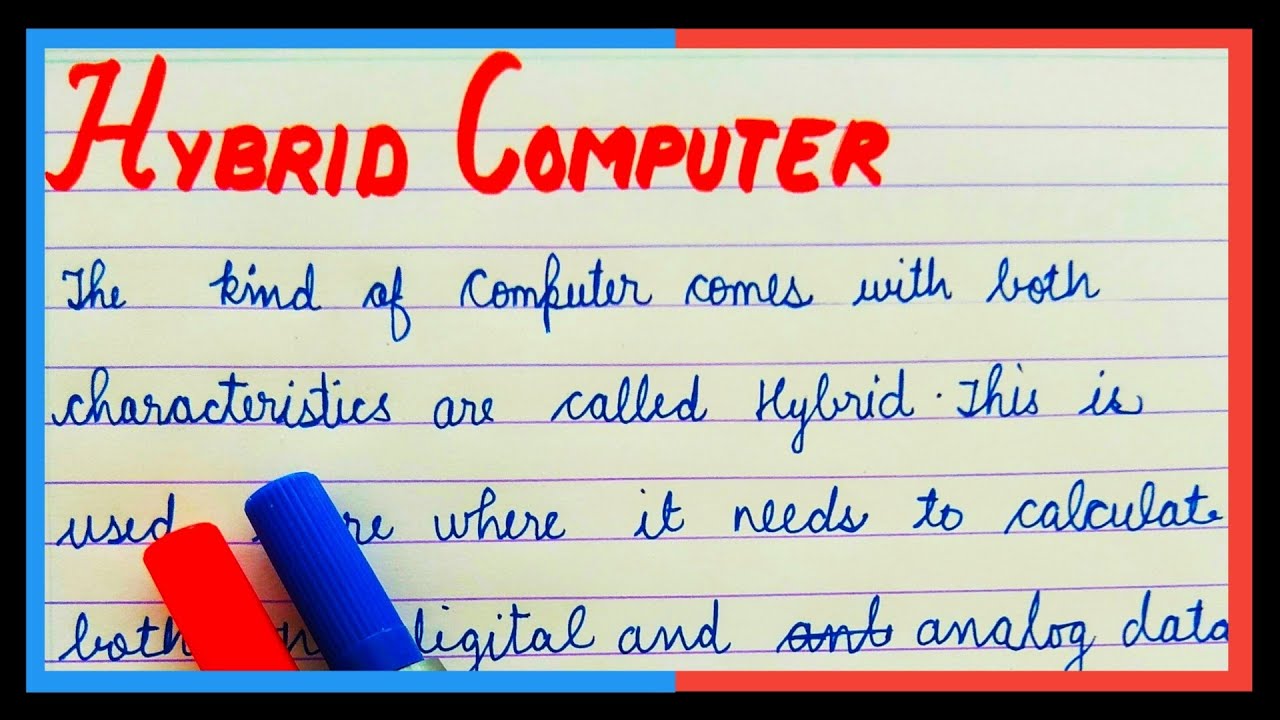 HYBRID COMPUTER
The kind of Computer comes with both
characteristics are called Hybrid. This is
used where it needs to calculate
both digital and ant analog data